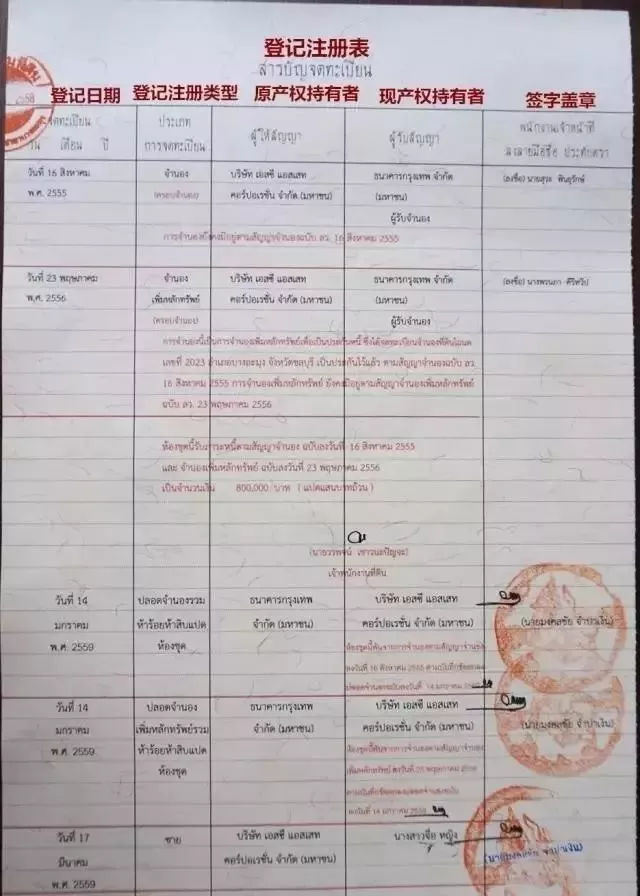 登记注册表
สารบัญจดทะเบียน
登记日期 登记注册类型 原产权持有者 现产权持有者 签字盖章
จดทะเบียน ประเภท ผู้ให้สัญญา ผู้รับสัญญา พนักงานเจ้าหน้าที่
วัน เดือน ปี การจดทะเบียน ลงลายมือชื่อ ประทับตรา
วันที่ 16 สิงหาคม จำนอง บริษัท เอสซี แอสเสท ธนาคารกรุงเทพ จำกัด (ลงชื่อ) นายสุระ
พ.ศ. 2555 (ครอบจำนอง) คอร์ปอเรชั่น จำกัด (มหาชน) (มหาชน)
ผู้รับจำนอง
การจำนองยังคงมีอยู่ตามสัญญาจำนองฉบับ ลว. 16 สิงหาคม 2555
วันที่ 23 พฤษภาคม จำนอง บริษัท เอสซี แอสเสท ธนาคารกรุงเทพ จำกัด (ลงชื่อ)
พ.ศ. 2556 เพิ่มหลักทรัพย์ คอร์ปอเรชั่น จำกัด (มหาชน) (มหาชน)
(ครอบจำนอง) ผู้รับจำนอง
การจำนองนี้เป็นการจำนองเพิ่มหลักทรัพย์เพื่อเป็นประกันหนี้ ซึ่งได้จดทะเบียนจำนองที่ดินโฉนด
เลขที่ 2023 อำเภอบางละมุง จังหวัดชลบุรี เป็นประกันไว้แล้ว ตามสัญญาจำนองฉบับ ลว.
16 สิงหาคม 2555 การจำนองเพิ่มหลักทรัพย์ ยังคงมีอยู่ตามสัญญาจำนองเพิ่มหลักทรัพย์
ฉบับ ลว. 23 พฤษภาคม 2556
ห้องชุดนี้รับภาระหนี้ตามสัญญาจำนอง ฉบับลงวันที่ 16 สิงหาคม 2555
และ จำนองเพิ่มหลักทรัพย์ ฉบับลงวันที่ 23 พฤษภาคม 2556
เป็นจำนวนเงิน 800,000 บาท (แปดแสนบาทถ้วน)
เจ้าพนักงานที่ดิน
วันที่ 14 ปลอดจำนองรวม ธนาคารกรุงเทพ บริษัท เอสซี แอสเสท
มกราคม ห้าร้อยห้าสิบแปด จำกัด (มหาชน) คอร์ปอเรชั่น จำกัด (มหาชน) (นายมงคลชัย จำปาเงิน)
พ.ศ. 2559 ห้องชุด ห้องชุดนี้พ้นจากการจำนองตามสัญญาจำนอง
ลงวันที่ 16 สิงหาคม 2555
ปลอดจำนองฉบับลงวันที่ 14 มกราคม
วันที่ 14 ปลอดจำนอง ธนาคารกรุงเทพ บริษัท เอสซี แอสเสท
มกราคม เพิ่มหลักทรัพย์รวม จำกัด (มหาชน) คอร์ปอเรชั่น จำกัด (มหาชน) (นายมงคลชัย จำปาเงิน)
พ.ศ. 2559 ห้าร้อยห้าสิบแปด ห้องชุดนี้พ้นจากการจำนองตามสัญญาจำนอง
ห้องชุด เพิ่มหลักทรัพย์
ลงวันที่ 14 มกราคม 2559
วันที่ 17 ขาย บริษัท เอสซี แอสเสท นางสาวจื่อ หญิง
มีนาคม คอร์ปอเรชั่น จำกัด (มหาชน) (นายมงคลชัย จำปาเงิน)
พ.ศ. 2559